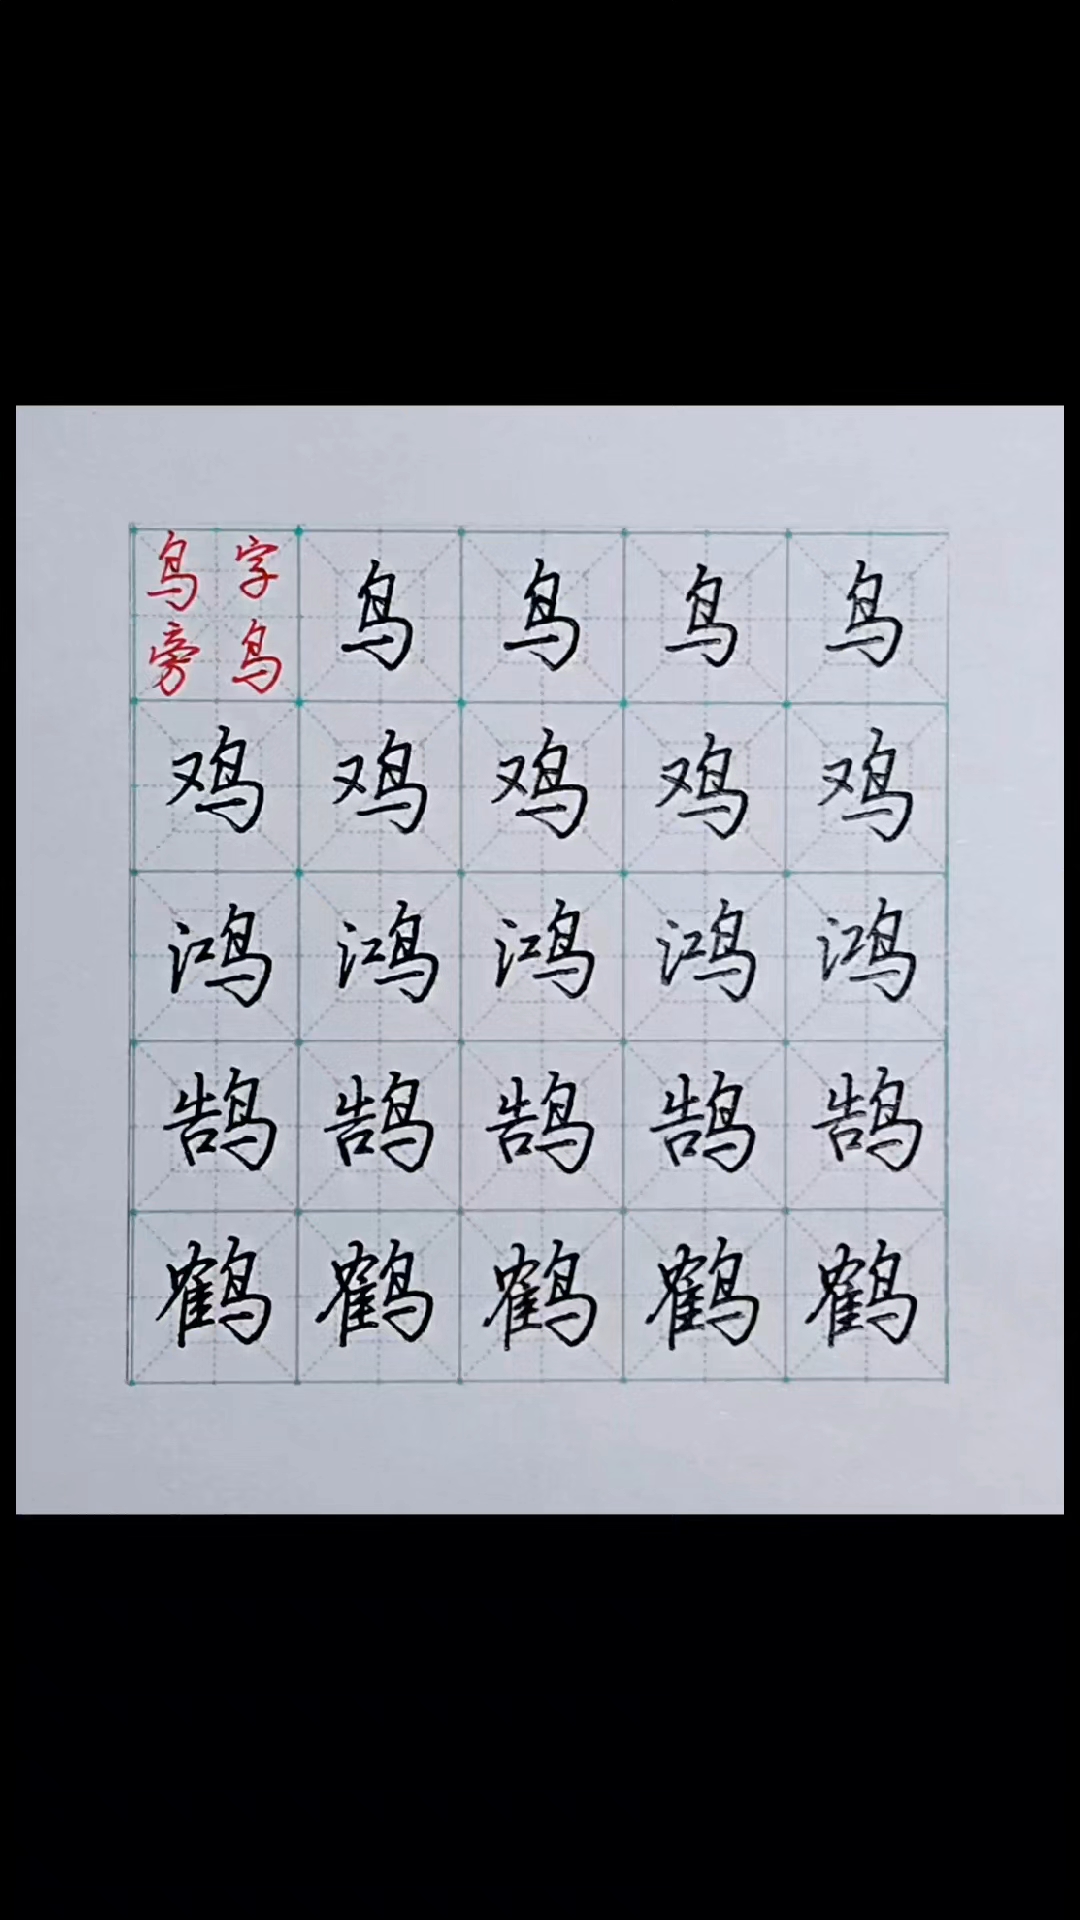 鸟字
旁鸟
鸟 鸟 鸟 鸟
鸡 鸡 鸡 鸡 鸡
鸿 鸿 鸿 鸿 鸿
鹄 鹄 鹄 鹄 鹄
鹤 鹤 鹤 鹤 鹤